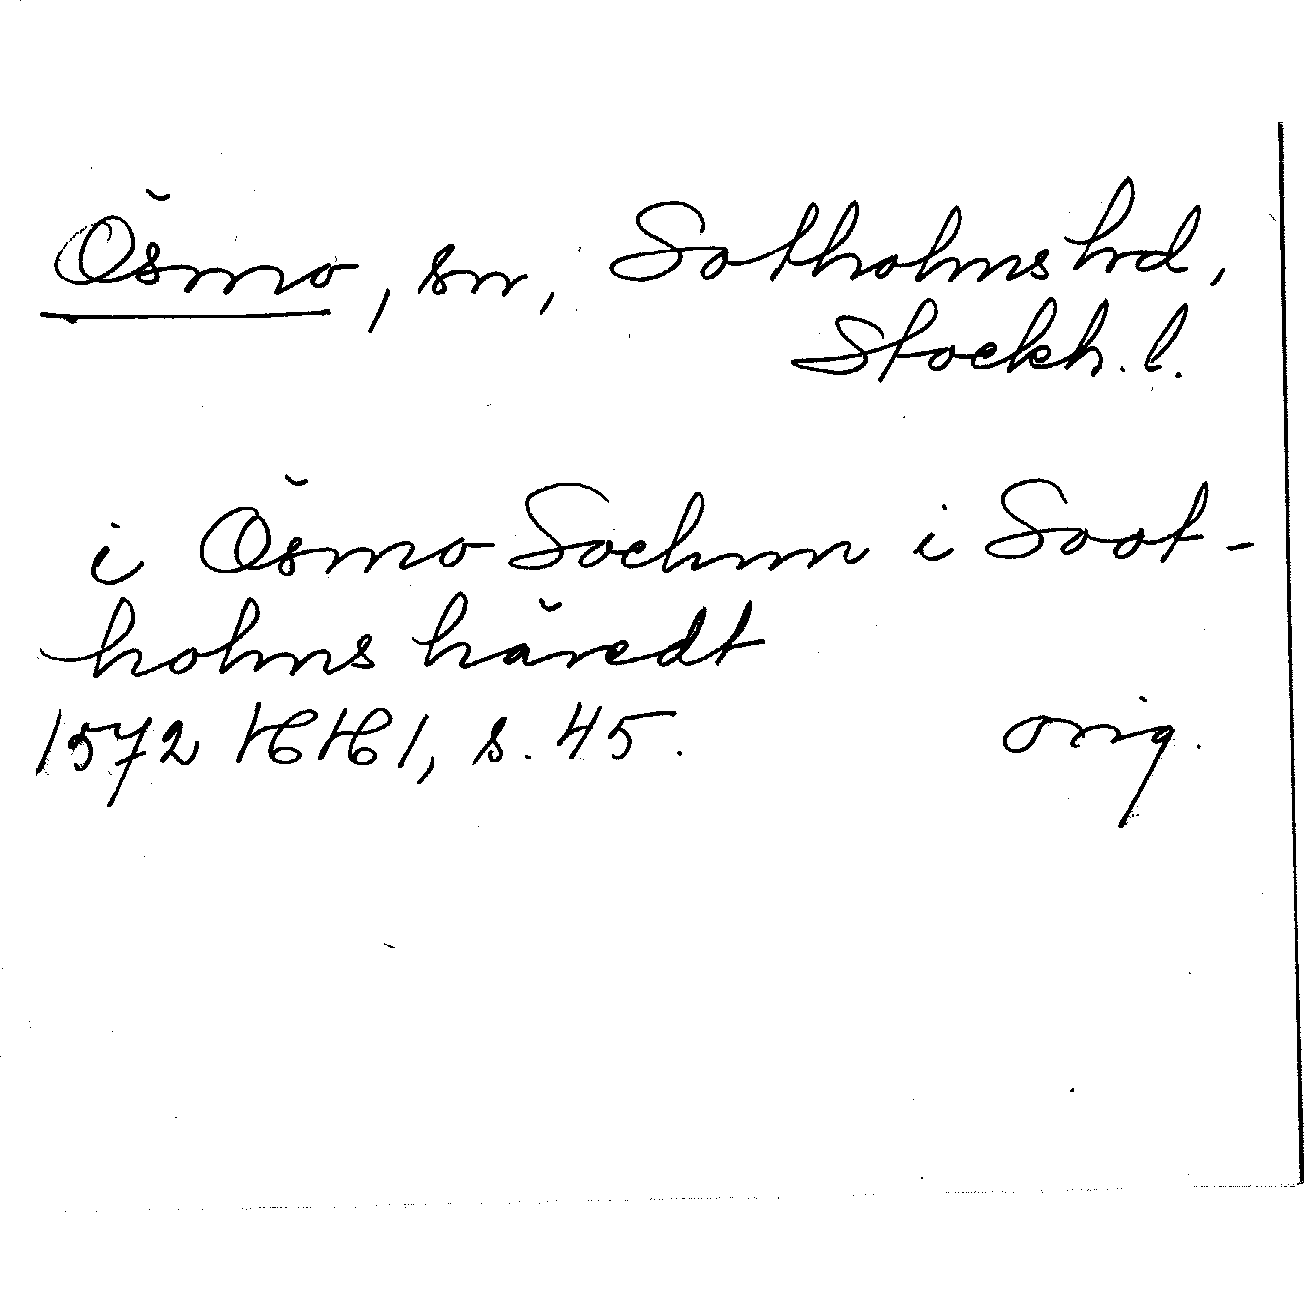 Ösmo, sn, Sotholms hd,
Stockh. l.
i Ösmo Sochnn i Soot-
holms häredt
1572 HH 1, s. 45. orig.